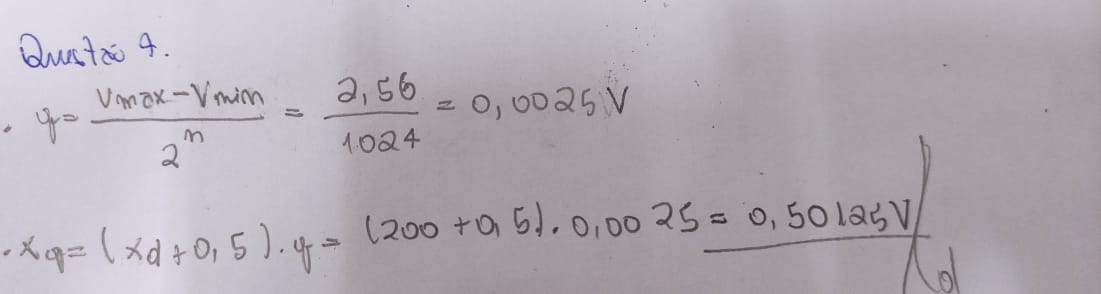 Questão 4.
. q = Vmax - Vmin / 2^n = 2,56 / 1024 = 0,0025 V
. xq = (xd + 0,5) . q = (200 + 0,5) . 0,0025 = 0,50125 V // d